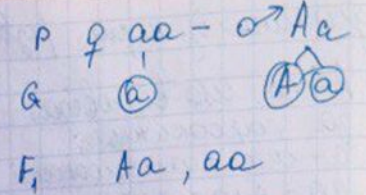 P ♀ aa – ♂ Aa
G a A a
F₁ Aa, aa